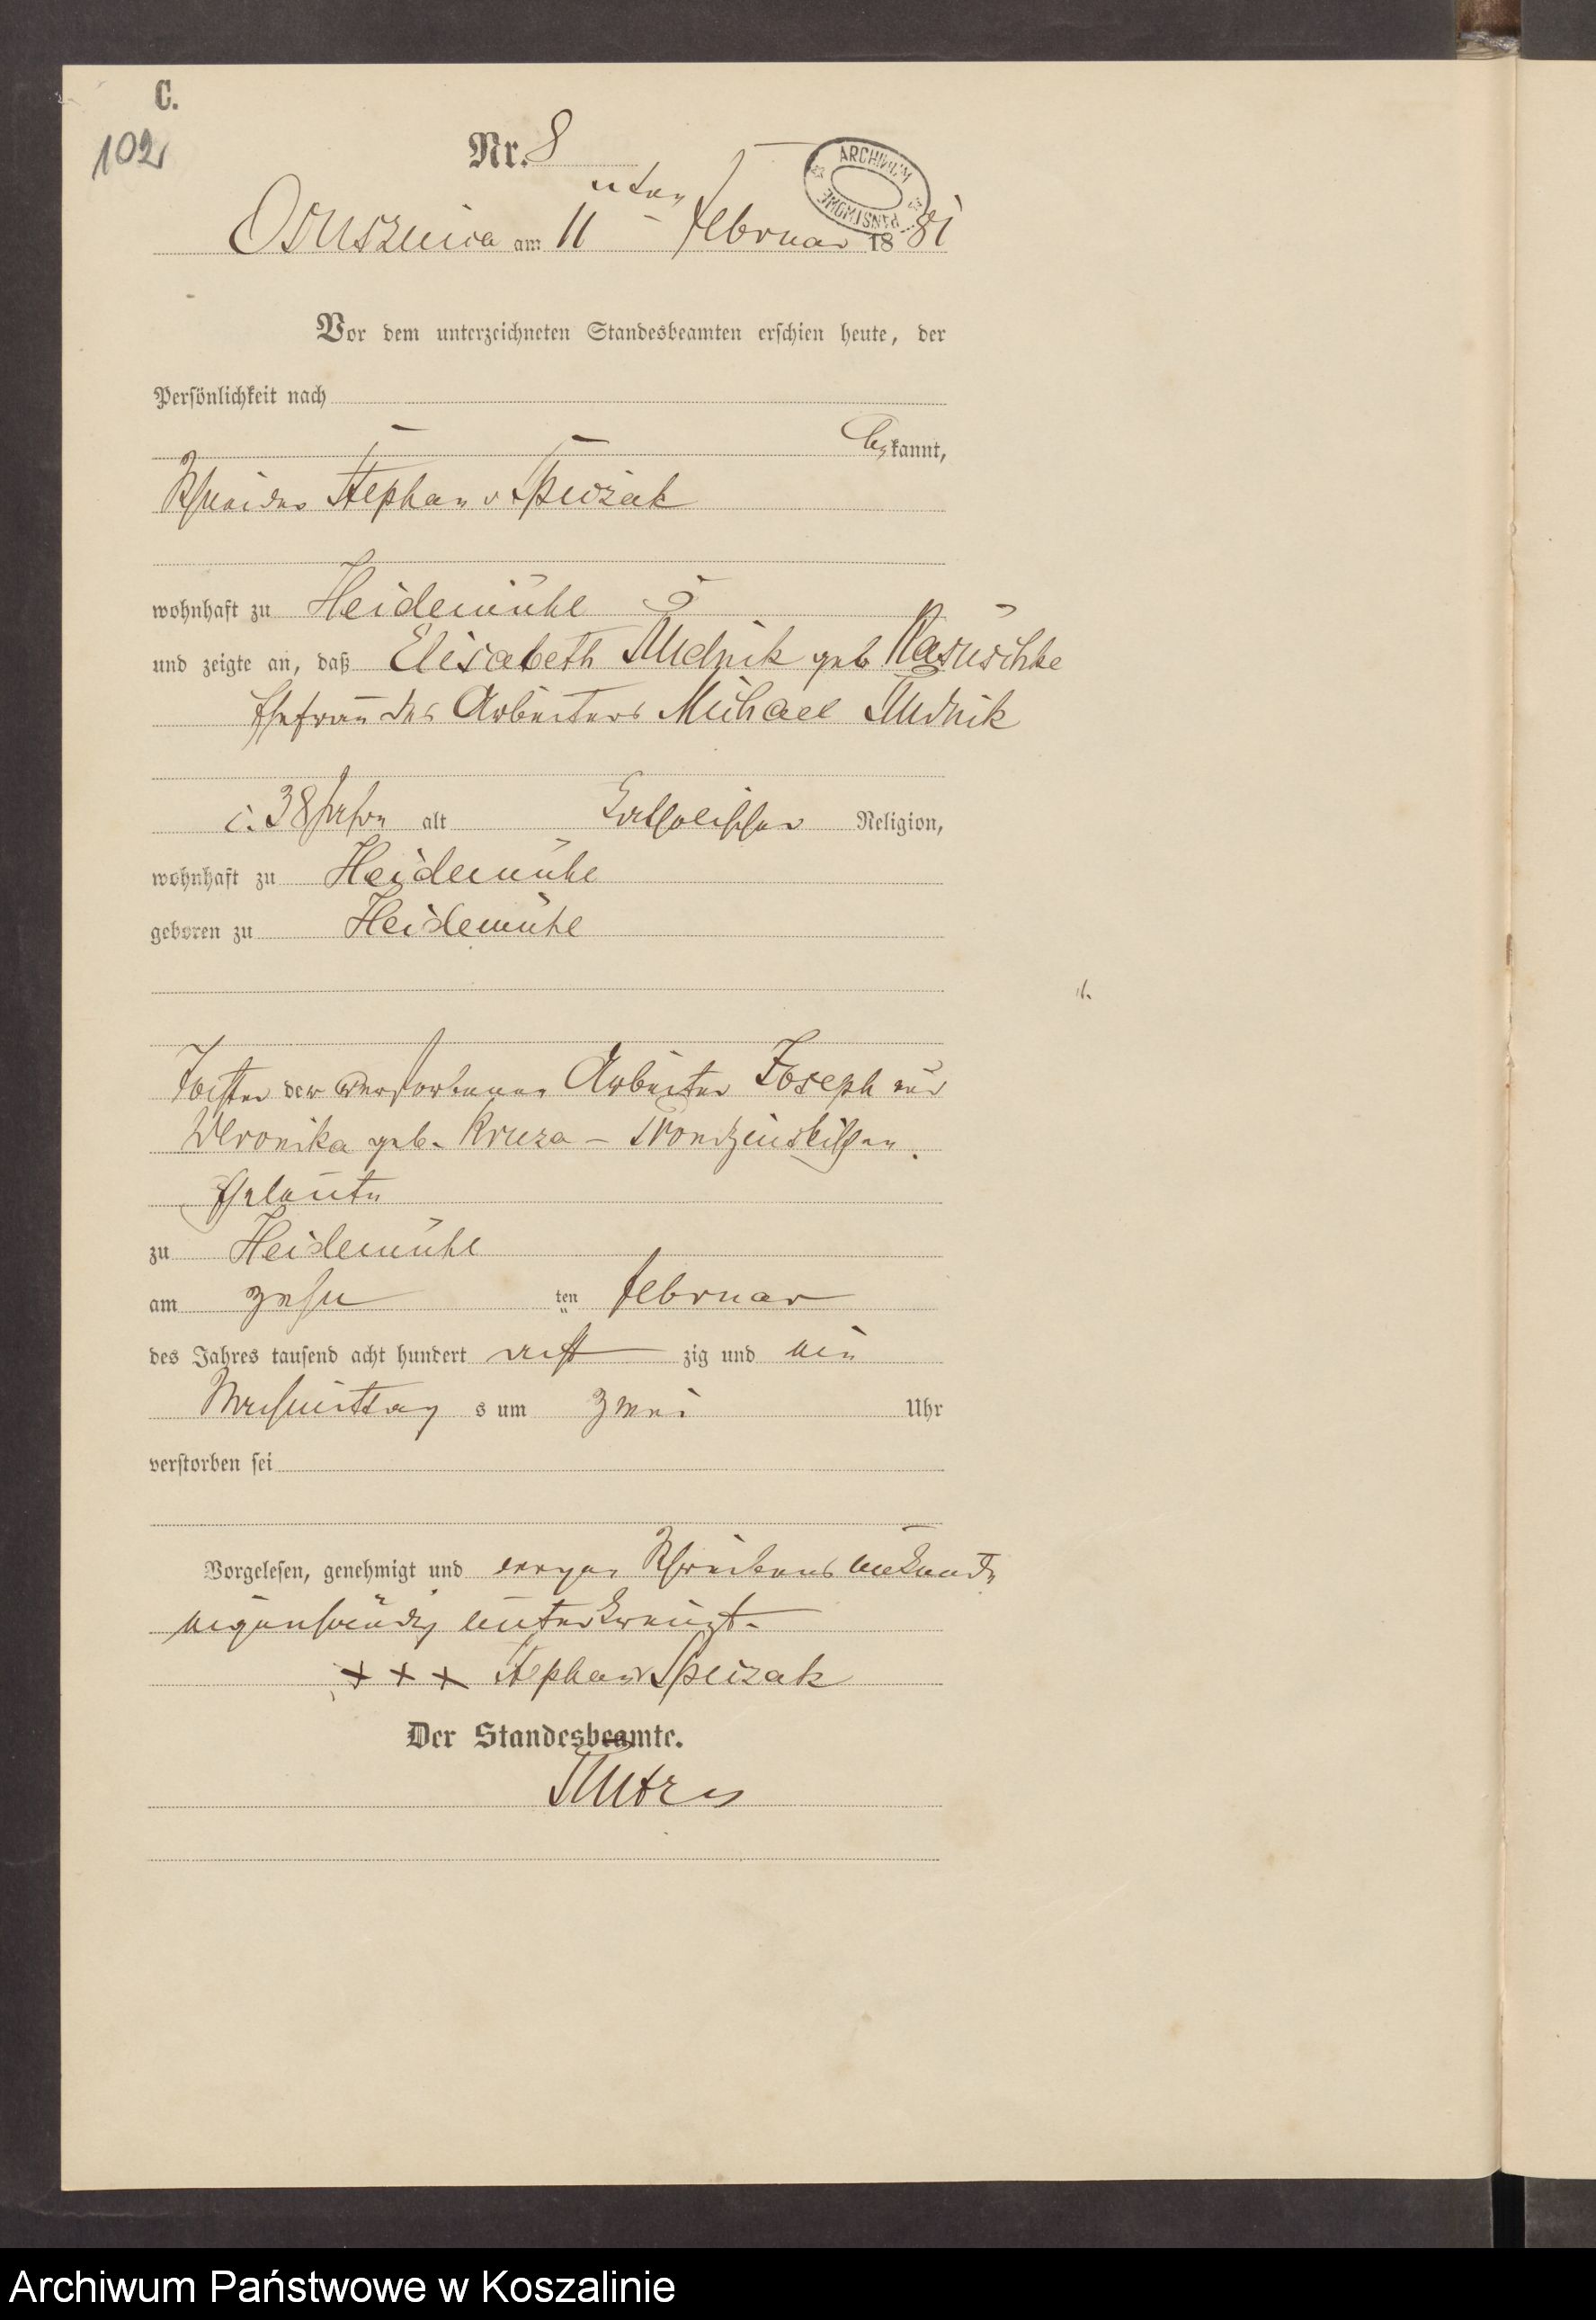 C.
102
Nr. 8
Osusznica am 11 ten Februar 1881
ARCHIWUM PAŃSTWOWE
Vor dem unterzeichneten Standesbeamten erschien heute, der
Persönlichkeit nach
be kannt,
Schneider Stephan v Spiczak
wohnhaft zu Heidemühl
und zeigte an, daß Elisabeth Rudnik geb
Ehefrau des Arbeiters Michael Rudnik
c. 38 Jahre alt katholischer Religion,
wohnhaft zu Heidemühl
geboren zu Heidemühl
Tochter der verstorbenen Arbeiter Joseph und
Veronika geb. Kruza -
Eheleute
zu Heidemühl
am zehn ten Februar
des Jahres tausend acht hundert acht zig und ein
Nachmittag s um zwei Uhr
verstorben sei
Vorgelesen, genehmigt und wegen Schreibens unkunde
eigenhändig unterkreuzt.
+ + + Stephan v Spiczak
Der Standesbeamte.
Archiwum Państwowe w Koszalinie